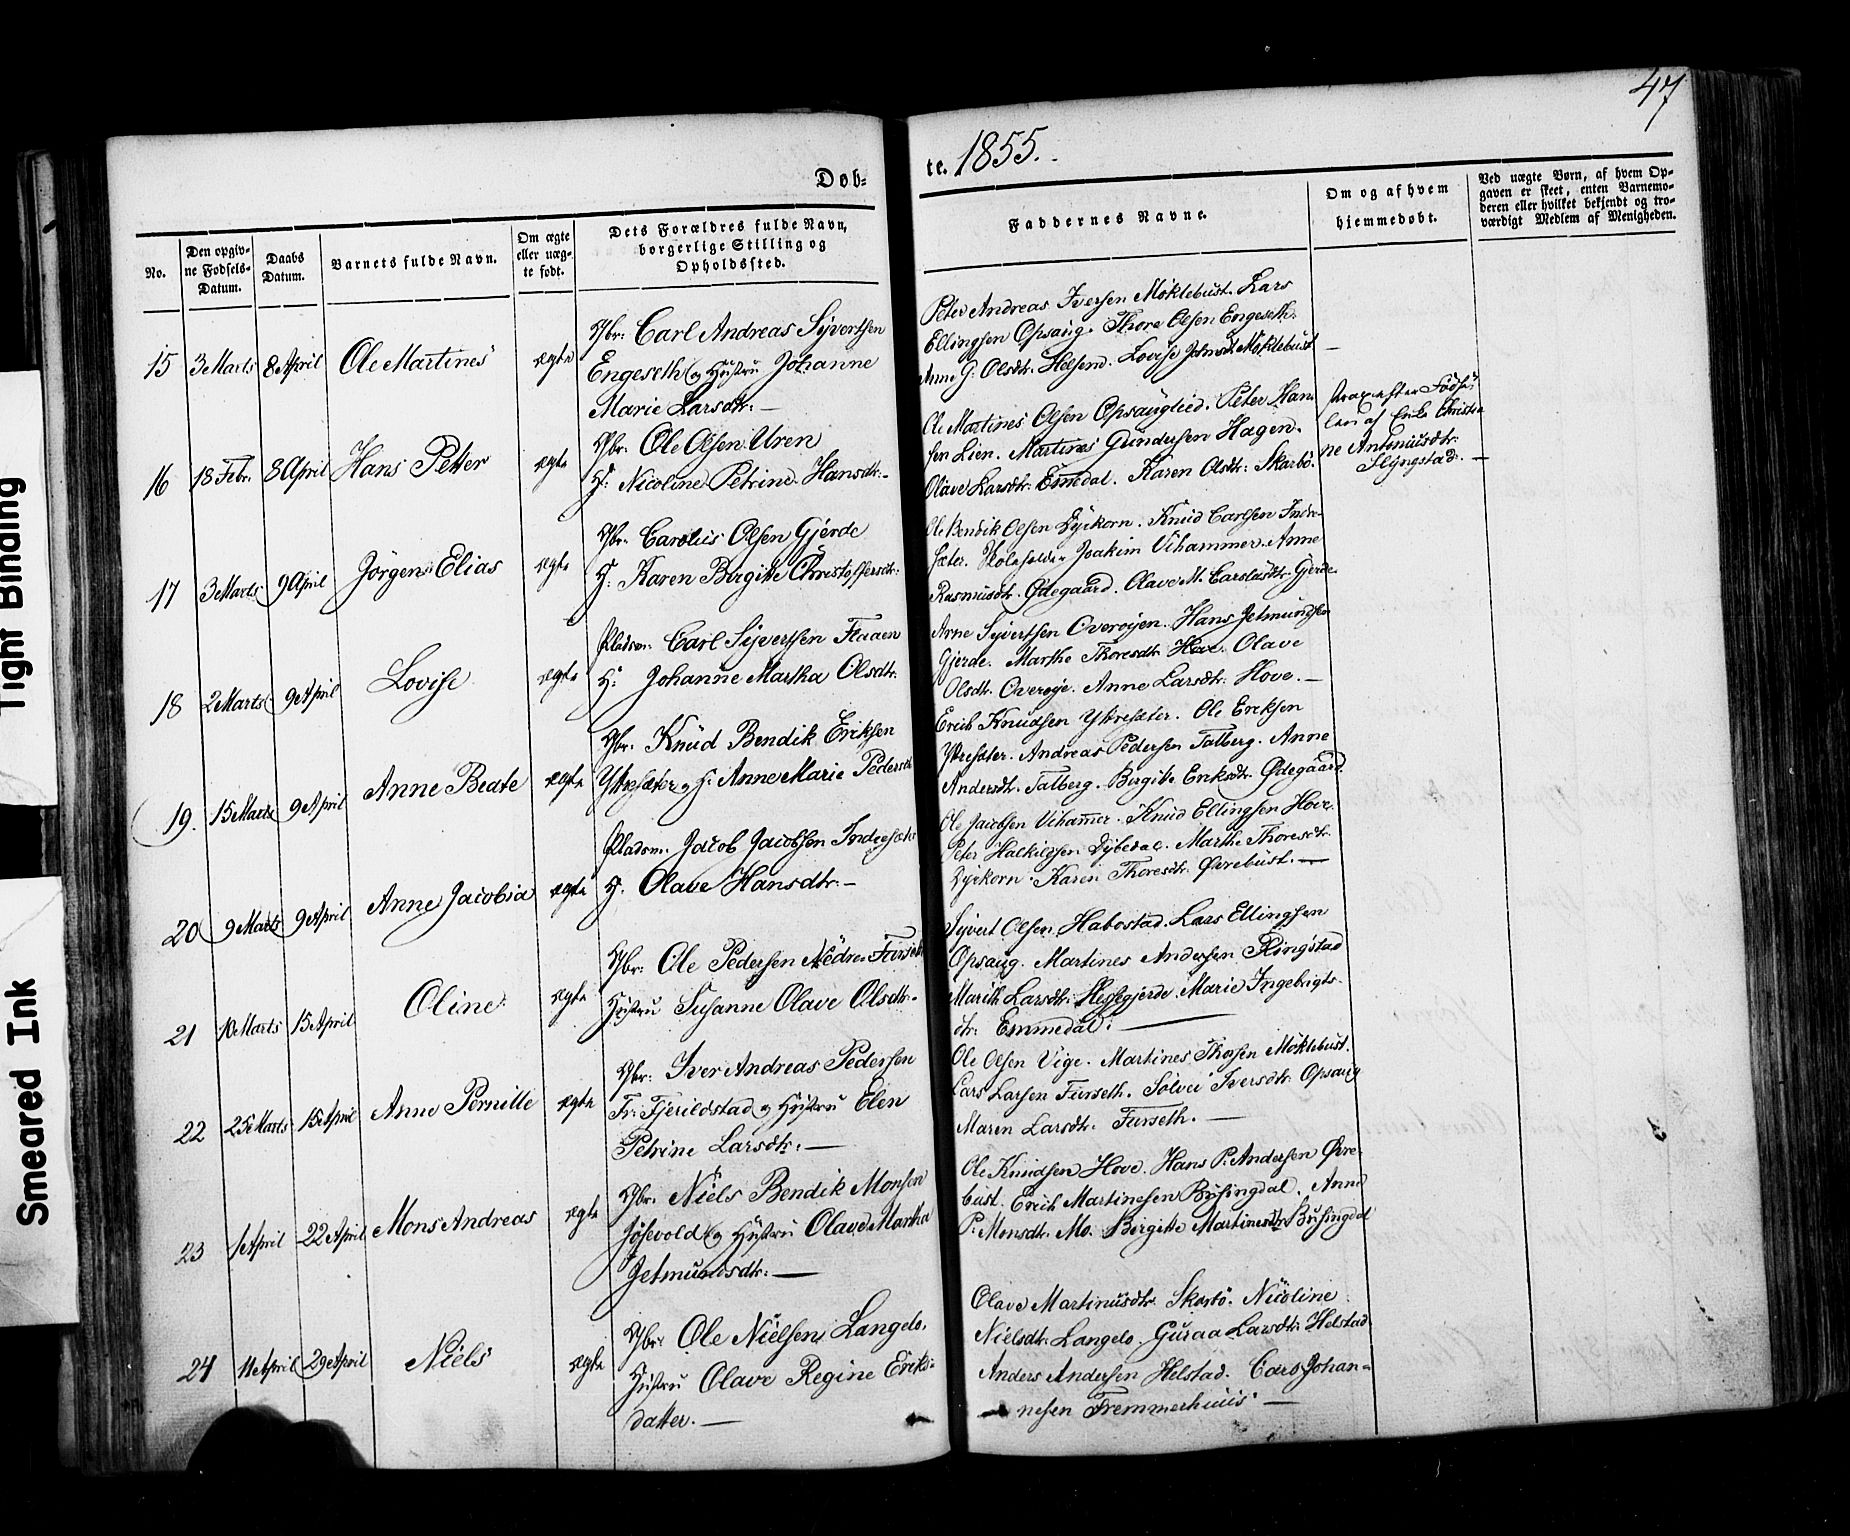 47
Døb-
te. 1855.
No.
Den opgiv-
ne Fødsels-
Datum.
Daabs
Datum.
Barnets fulde Navn.
Om ægte
eller uæg-
te født.
Dets Forældres fulde Navn,
borgerlige Stilling og
Opholdssted.
Faddernes Navne.
Om og af hvem
hjemmedøbt.
Ved uægte Børn, af hvem Op-
gaven er skeet, enten Barnemo-
deren eller hvilket bekjendt og tro-
værdigt Medlem af Menigheden.
15 3 Marts 8 April Ole Martines ægte
Gbr: Carl Andreas Syvertsen
Engeseth og Hustru Johanne
Marie Larsdtr. —
Peter Andreas Iversen Møklebust. Lars
Ellingsen Opsaug. Thore Olsen Engeseth.
Anne G. Olsdtr. Helsem. Lovise Møklebust —
16 18 Febr. 8 April Hans Petter ægte
Gbr. Ole Olsen Uren
H: Nicoline Petrine Hansdtr. —
Ole Martines Olsen Opsauglied. Peter Han-
sen Lien. Martines Gundersen Hagen.
Olave Larsdtr. Emdal. Karen Olsdtr: Skarbø.
strax efter Fødse
len af Enke Christia
ne Antoniusdtr.
Slyngstad. —
17 3 Marts 9 April Jörgen Elias ægte
Gbr. Carolus Olsen Gjerde
H: Karen Birgitte Christoffersdtr.
Ole Bendik Olsen Dyrkorn. Knud Carlsen Indre-
sæter. Skoleholder Joakim Vihammer. Anne
Rasmusdtr. Ødegaard. Olave M. Carlsdtr. Gjerde
18 2 Marts 9 April Lovise ægte
Pladsm. Carl Syvertsen Flaaen
H: Johanne Martha Olsdtr.
Arne Syvertsen Overøien. Hans Jetmundsen
Gjerde. Marthe Thoresdtr. Hove. Olave
Olsdtr. Overøye. Anne Larsdtr. Hove. —
19. 15 Marts 9 April Anne Beate ægte
Gbr. Knud Bendik Eriksen
Ytresæter og H: Anne Marie Pedersdtr
Erich Knudsen Ytresæter. Ole Ereksen
Ytresæter. Andreas Pedersen Talberg. Anne
Andersdtr. Talberg. Birgitte Eriksdtr. Ødegaard.
20 9 Marts 9 April Anne Jacobia ægte
Pladsm. Jacob Jacobsen Indresæter
H. Olave Hansdtr. —
Ole Jacobsen Vihamer. Knud Ellingsen Hove.
Peter Halkildsen Dybedal. Marthe Thoresdtr.
Dyrkorn. Karen Thoresdtr. Øvrebust. —
21 10 Marts 15 April Oline ægte
Gbr: Ole Pedersen Nedre Furseth
Hustru Susanne Olave Olsdtr.
Syvert Olsen Habostad. Lars Ellingsen
Opsaug. Martines Andersen Slingstad
Marith Larsdtr. Heggegjerde. Marie Ingebrigts-
dtr. Emmedal. —
22 25 Marts 15 April Anne Pernille ægte
Gbr: Iver Andreas Pedersen
Fr. Fjerildstad og Hustru Elen
Petrine Larsdtr. —
Ole Olsen Vige. Martines Thorsen Møklebust.
Lars Larsen Furseth. Solvei Iversdtr. Opsaug
Maren Larsdtr. Furseth. —
23 1 April 22 April Mons Andreas ægte
Gbr. Niels Bendik Monsen
Jøsevold og Hustru Olave Martha
Jetmundsdtr. —
Ole Knudsen Hove. Hans P. Andersen Øvre-
bust. Erich Martinesen Busingdal. Anne
P. Monsdtr. Mo. Birgitte Martinesdtr. Busingdal
24 11 April 29 April Niels ægte
Gbr: Ole Nielsen Langelo,
Hustru Olave Regine Eriks-
datter. —
Olave Martinusdtr. Skarbø. Nicoline
Nielsdtr. Langelo. Guraa Larsdtr. Helstad
Anders Andersen Helstad. Carl Johan-
nesen Fremmerhuus —
Tight Binding
Smeared Ink